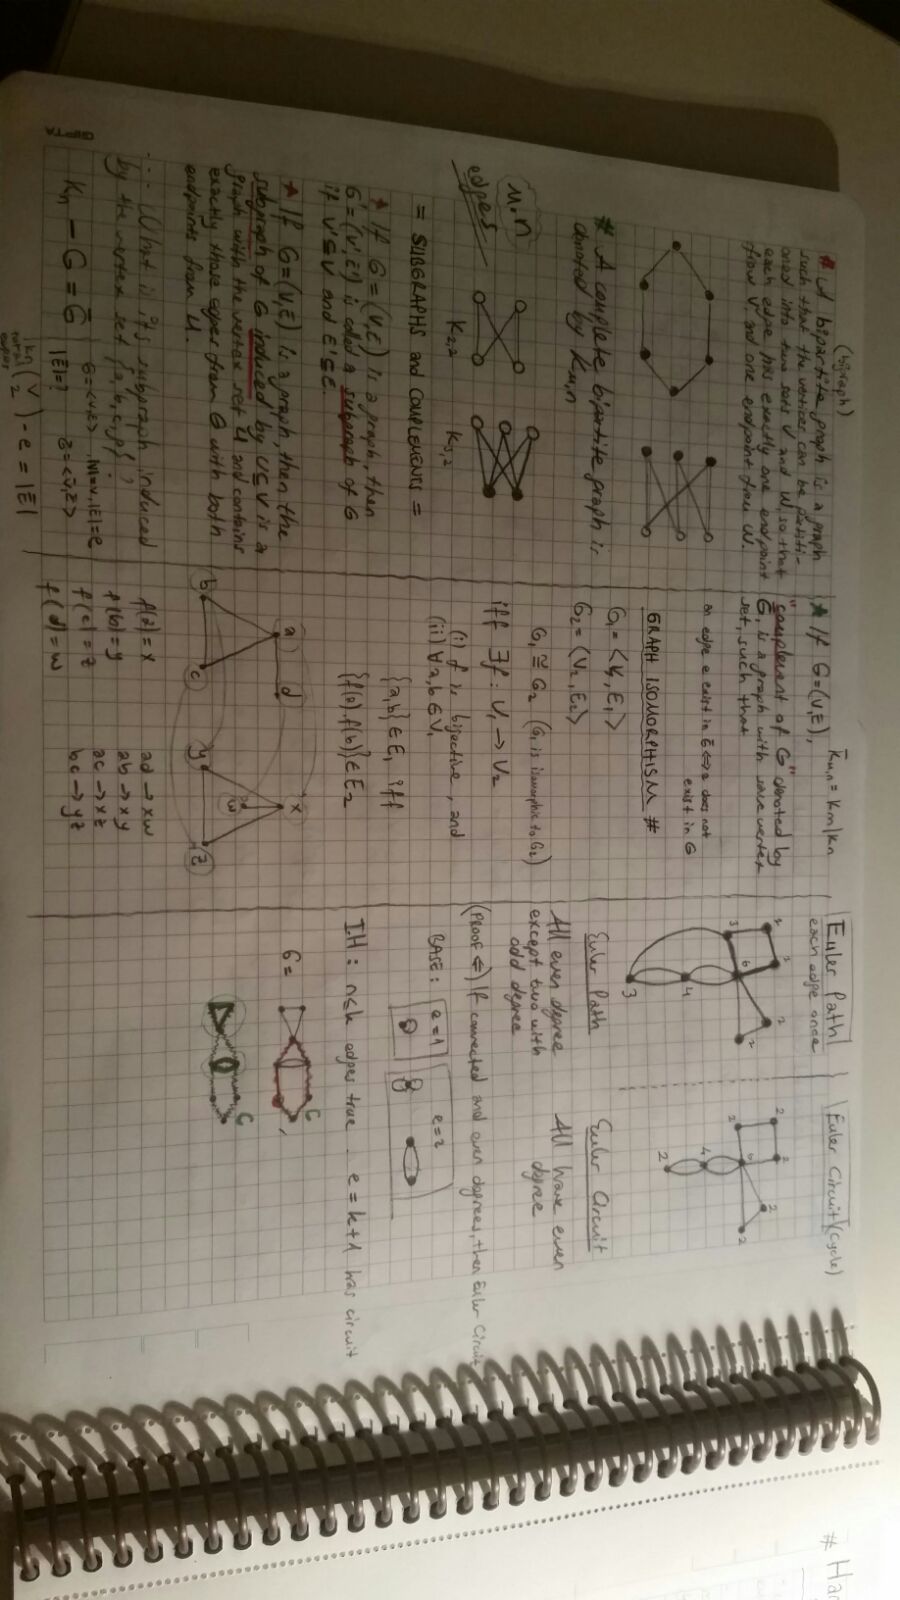 (bigraph)
# A bipartite graph is a graph
such that the vertices can be partiti-
oned into two sets V and W, so that
each edge has exactly one endpoint
from V, and one endpoint from W.
# A complete bipartite graph is
denoted by Km,n
m.n
edges
K2,2
K3,2
= SUBGRAPHS and COMPLEMENTS =
* If G = (V,E) is a graph, then
G' = (V',E') is called a subgraph of G
if V'⊆V and E'⊆E.
* If G=(V,E) is a graph, then the
subgraph of G induced by U⊆V is a
graph with the vertex set U and contains
exactly those edges from G with both
endpoints from U.
... What is its subgraph induced
by the vertex set {a,b,c,p}?
Kn − G = Ḡ
G=<V,E> , |V|=v, |E|=e
|Ē|=?
Ḡ=<V,Ē>
Kn
total
edges
(v 2) - e = |Ē|
K̄m,n = Km|Kn
* If G=(V,E),
"complement of G" denoted by
Ḡ, is a graph with same vertex
set, such that
an edge e exist in Ḡ ⟺ e does not
exist in G
GRAPH ISOMORPHISM #
G1 = <V1, E1>
G2 = <V2, E2>
G1 ≅ G2 (G1 is isomorphic to G2)
iff ∃f: V1 → V2
(i) f is bijective, and
(ii) ∀a,b ∈ V1
{a,b} ∈ E1 iff
{f(a),f(b)} ∈ E2
a d x
w
b c y z
f(a) = x
f(b) = y
f(c) = z
f(d) = w
ad → xw
ab → xy
ac → xz
bc → yz
Euler Path
each edge once
2 2 2
3 6 2
4
3
Euler Circuit (Cycle)
2 2 2
2 6 2
4
2
Euler Path
All even degree
except two with
odd degree
Euler Circuit
All have even
degree
(PROOF ⇐) If connected and even degrees, then Euler Circuit
BASE: e=1 e=2
IH: n≤k edges true. e=k+1 has circuit
G =
C
,
C
# Ha
GIPTA